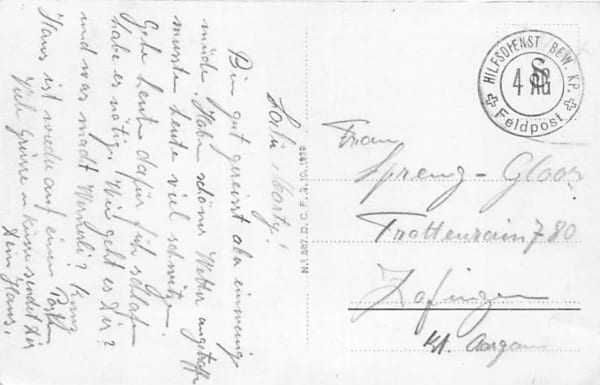 Salü Marty!
Bin gut gereist aber ein wenig
müde. Habe schönes Wetter angetroffen
mussten heute viel schwitzen.
Gehe heute dafür früh schlafen
habe es nötig. Wie geht es Dir?
und was macht Wernerli?
Hans ist wieder auf einem Posten
Viele Grüsse u. Küsse sendet Dir
Dein Hans.
HILFSDIENST BEW. KP.
4 AG
S
Feldpost
Frau
Spreng-Gloor
Trottenrain 780
Zofingen
Kt. Aargau